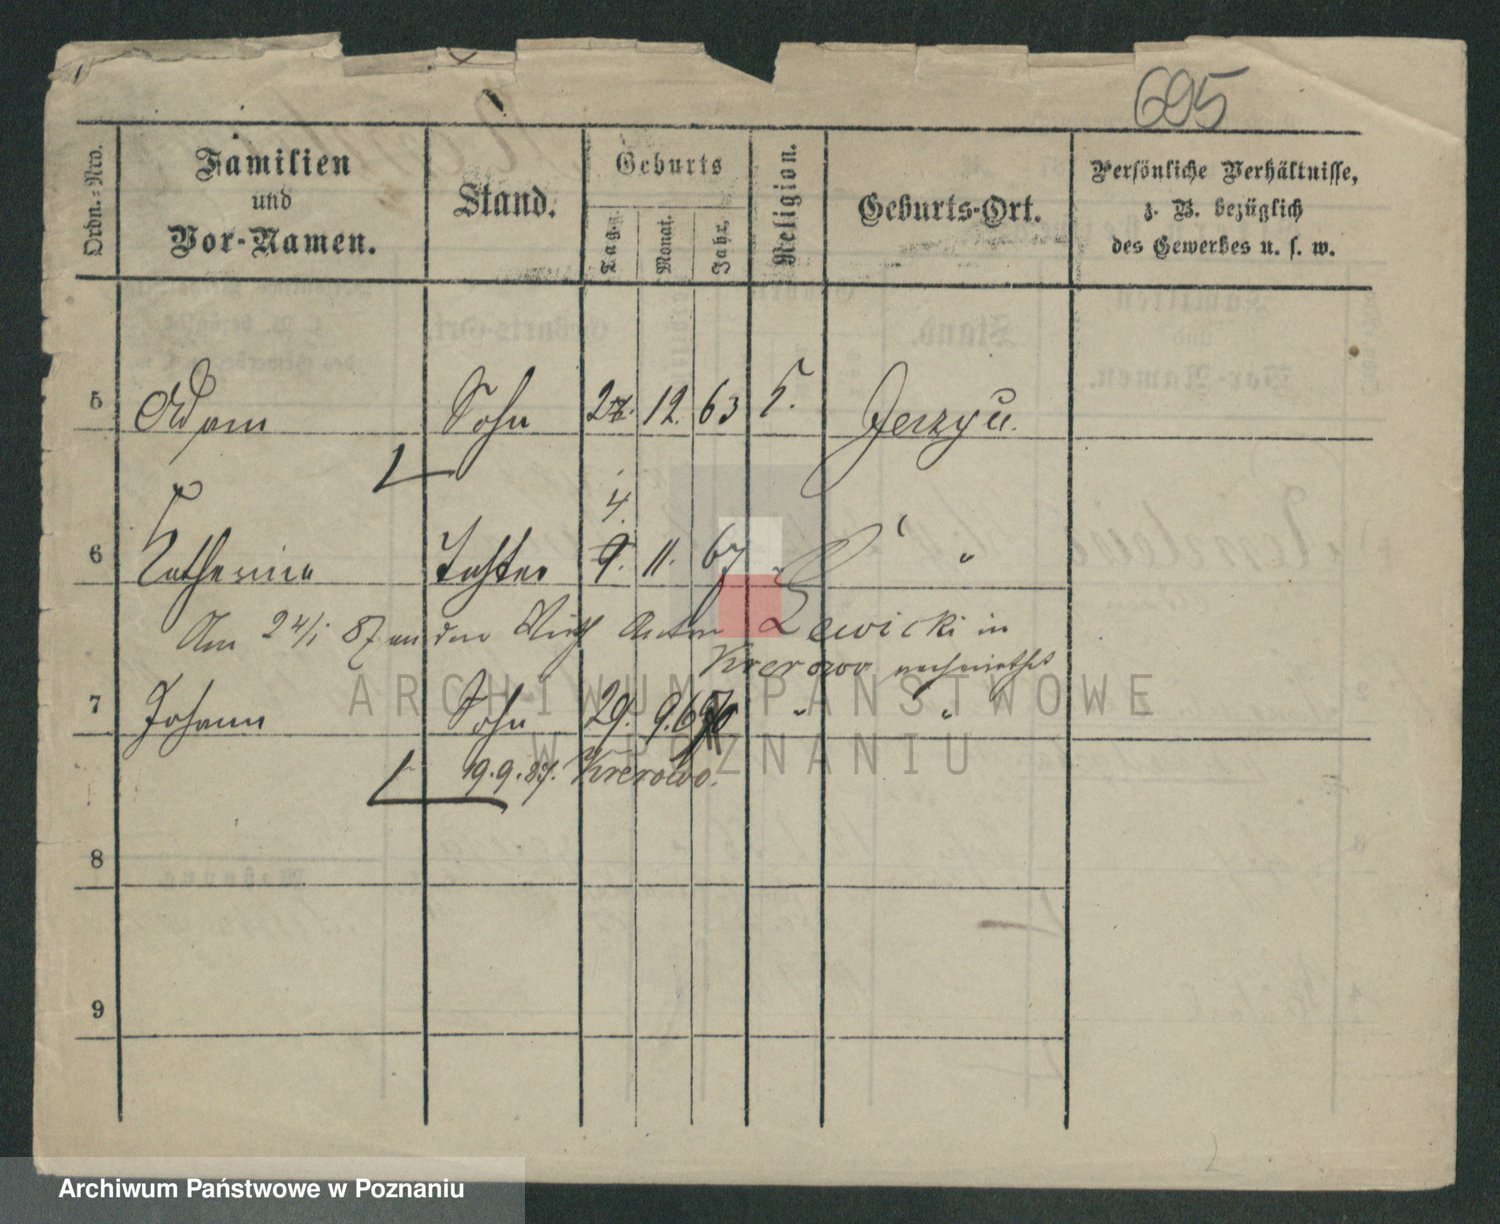 695
Ordn.-Nro.
Familien
und
Vor-Namen.
Stand.
Geburts
Tag.
Monat.
Jahr.
Religion.
Geburts-Ort.
Persönliche Verhältnisse,
z. B. bezüglich
des Gewerbes u. s. w.
5 Adam Sohn 12. 63 Jerzyn.
4.
6 Katharina Tochter 9. 11. 67 " "
Am 24/1 87 an den Wirth Anton Lewicki in
Krerowo
7 Johann Sohn 29. 9. " "
19.9.87. Krerowo.
8
9
ARCHIWUM PAŃSTWOWE
W POZNANIU
Archiwum Państwowe w Poznaniu